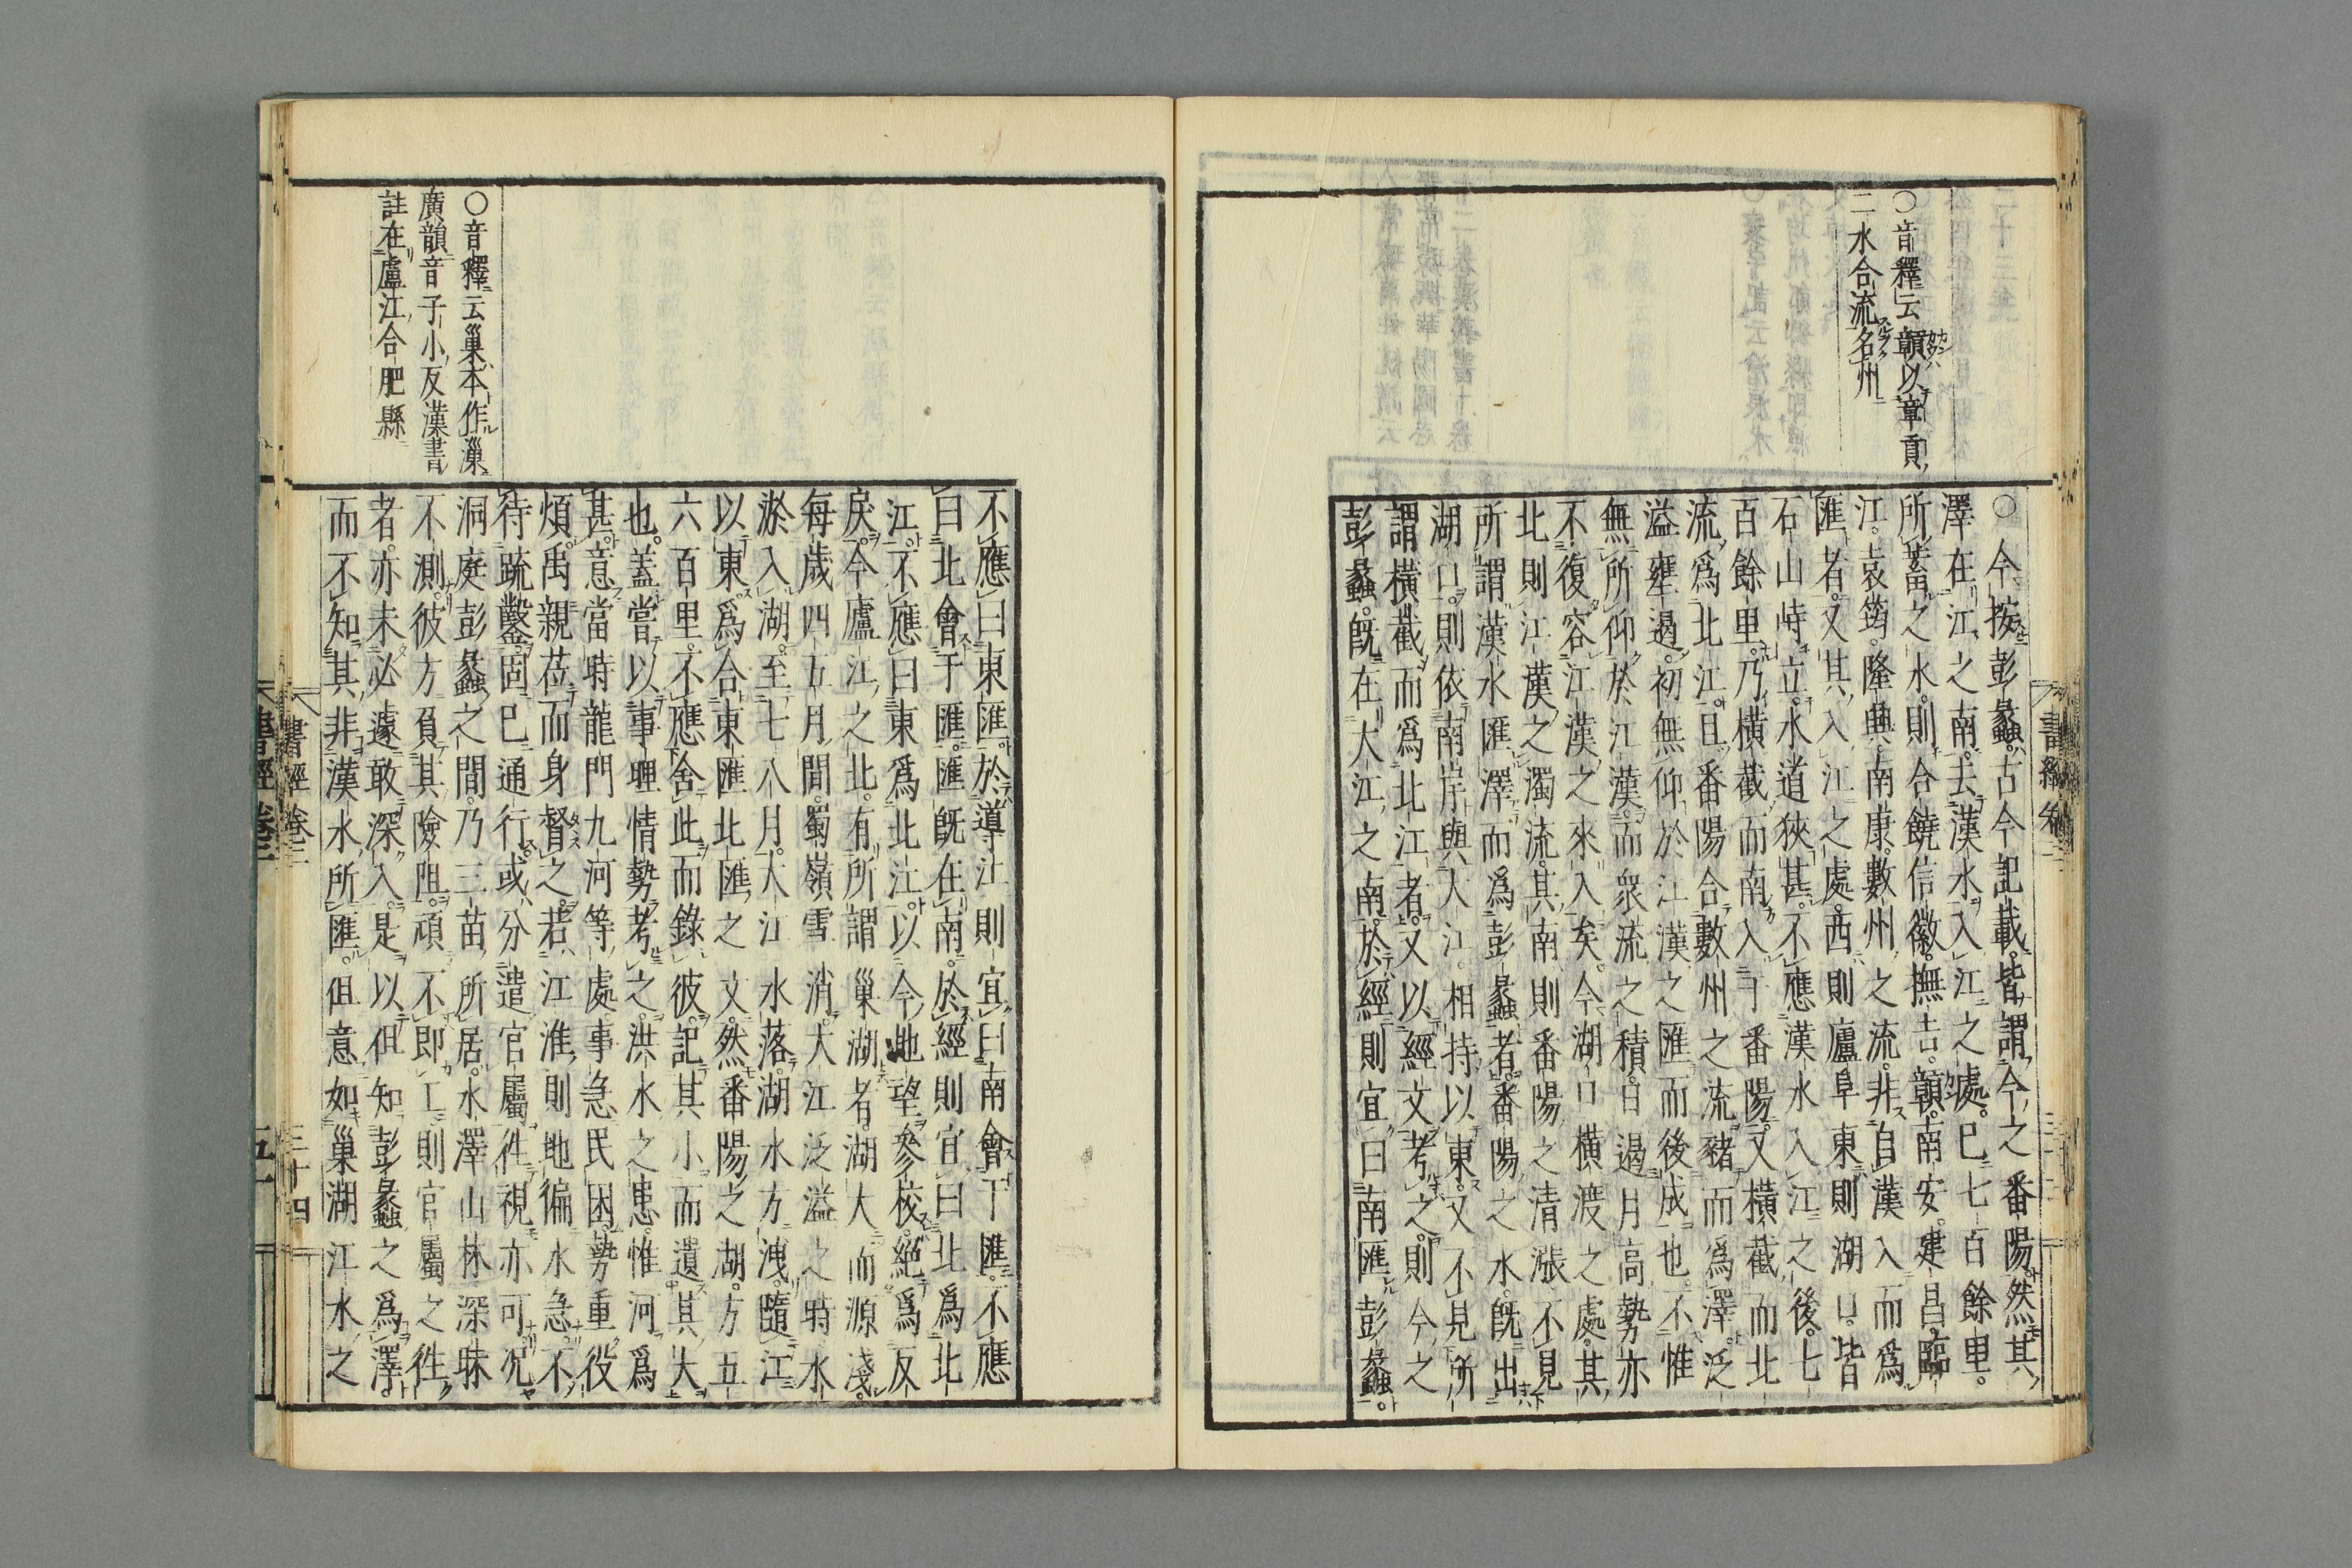 ○音釋云贛以章貢
二水合流名州
○今按彭蠡古今記載皆謂今之番陽然其
澤在江之南去漢水入江之處已七百餘里
所蓄之水則合饒信徽撫吉贛南安建昌臨
江袁筠隆興南康數州之流非自漢入而爲
匯者又其入江之處西則廬阜東則湖口皆
石山峙立水道狹甚不應漢水入江之後七
百餘里乃橫截而南入于番陽又橫截而北
流爲北江且番陽合數州之流豬而爲澤泛
溢壅遏初無仰於江漢之匯而後成也不惟
無所仰於江漢而衆流之積日遏月高勢亦
不復容江漢之來入矣今湖口橫渡之處其
北則江漢之濁流其南則番陽之清漲不見
所謂漢水匯澤而爲彭蠡者番陽之水旣出
湖口則依南岸與大江相持以東又不見所
謂橫截而爲北江者又以經文考之則今之
彭蠡旣在大江之南於經則宜曰南匯彭蠡
不應曰東匯於導江則宜曰南會于匯不應
曰北會于匯匯旣在南於經則宜曰北爲北
江不應曰東爲北江以今地望參校絕爲反
戾今廬江之北有所謂巢湖者湖大而源淺
每歲四五月間蜀嶺雪消大江泛溢之時水
淤入湖至七八月大江水落湖水方洩隨江
以東爲合東匯北匯之文然番陽之湖方五
六百里不應舍此而錄彼記其小而遺其大
也蓋嘗以事理情勢考之洪水之患惟河爲
甚意當時龍門九河等處事急民困勢重役
煩禹親莅而身督之若江淮則地偏水急不
待疏鑿固已通行或分遣官屬徃視亦可况
洞庭彭蠡之間乃三苗所居水澤山林深昧
不測彼方負其險阻頑不即工則官屬之徃
者亦未必遽敢深入是以但知彭蠡之爲澤
而不知其非漢水所匯但意如巢湖江水之
○音釋云巢本作漅
廣韻音子小反漢書
註在廬江合肥縣
書經卷三
三十四